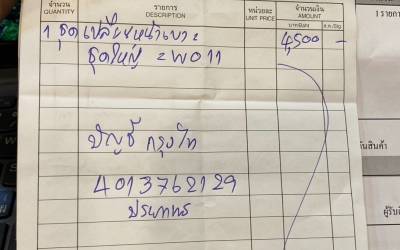 จำนวน รายการ หน่วยละ จำนวนเงิน
QUANTITY DESCRIPTION UNIT PRICE AMOUNT
บาท/Baht ส.ต./Stg.
1 ชุด เปลี่ยนหน้าเบาะ 4,500 -
ชุดใหญ่ = W011
บัญชี กรุงไท
4013762129
1 รายการ